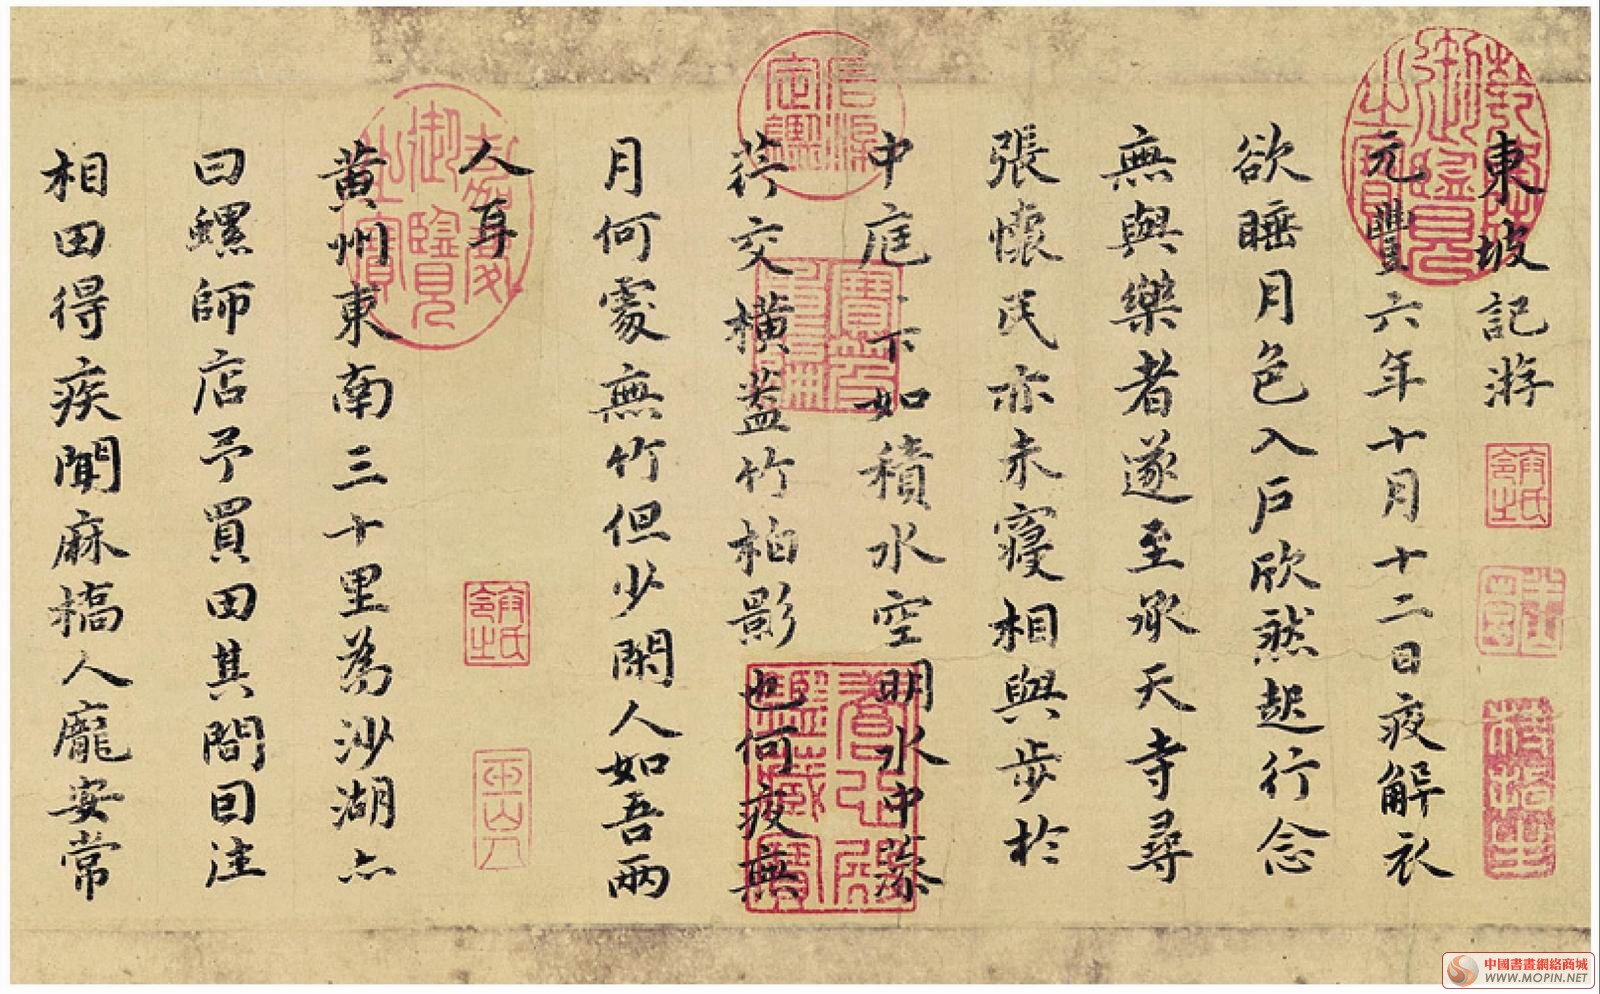 東坡記游
元豐六年十月十二日夜解衣
欲睡月色入戶欣然起行念
無與樂者遂至承天寺尋
張懷民亦未寢相與步於
中庭〻下如積水空明水中藻
荇交橫蓋竹柏影也何夜無
月何處無竹但少閑人如吾兩
人耳
黃州東南三十里為沙湖亦
曰螺師店予買田其間因往
相田得疾聞麻橋人龐安常
乾隆御覽之寶
石渠定鑑
寶笈重編
養心殿鑑藏寶
嘉慶御覽之寶
中國書畫網絡商城
WWW.MOPIN.NET